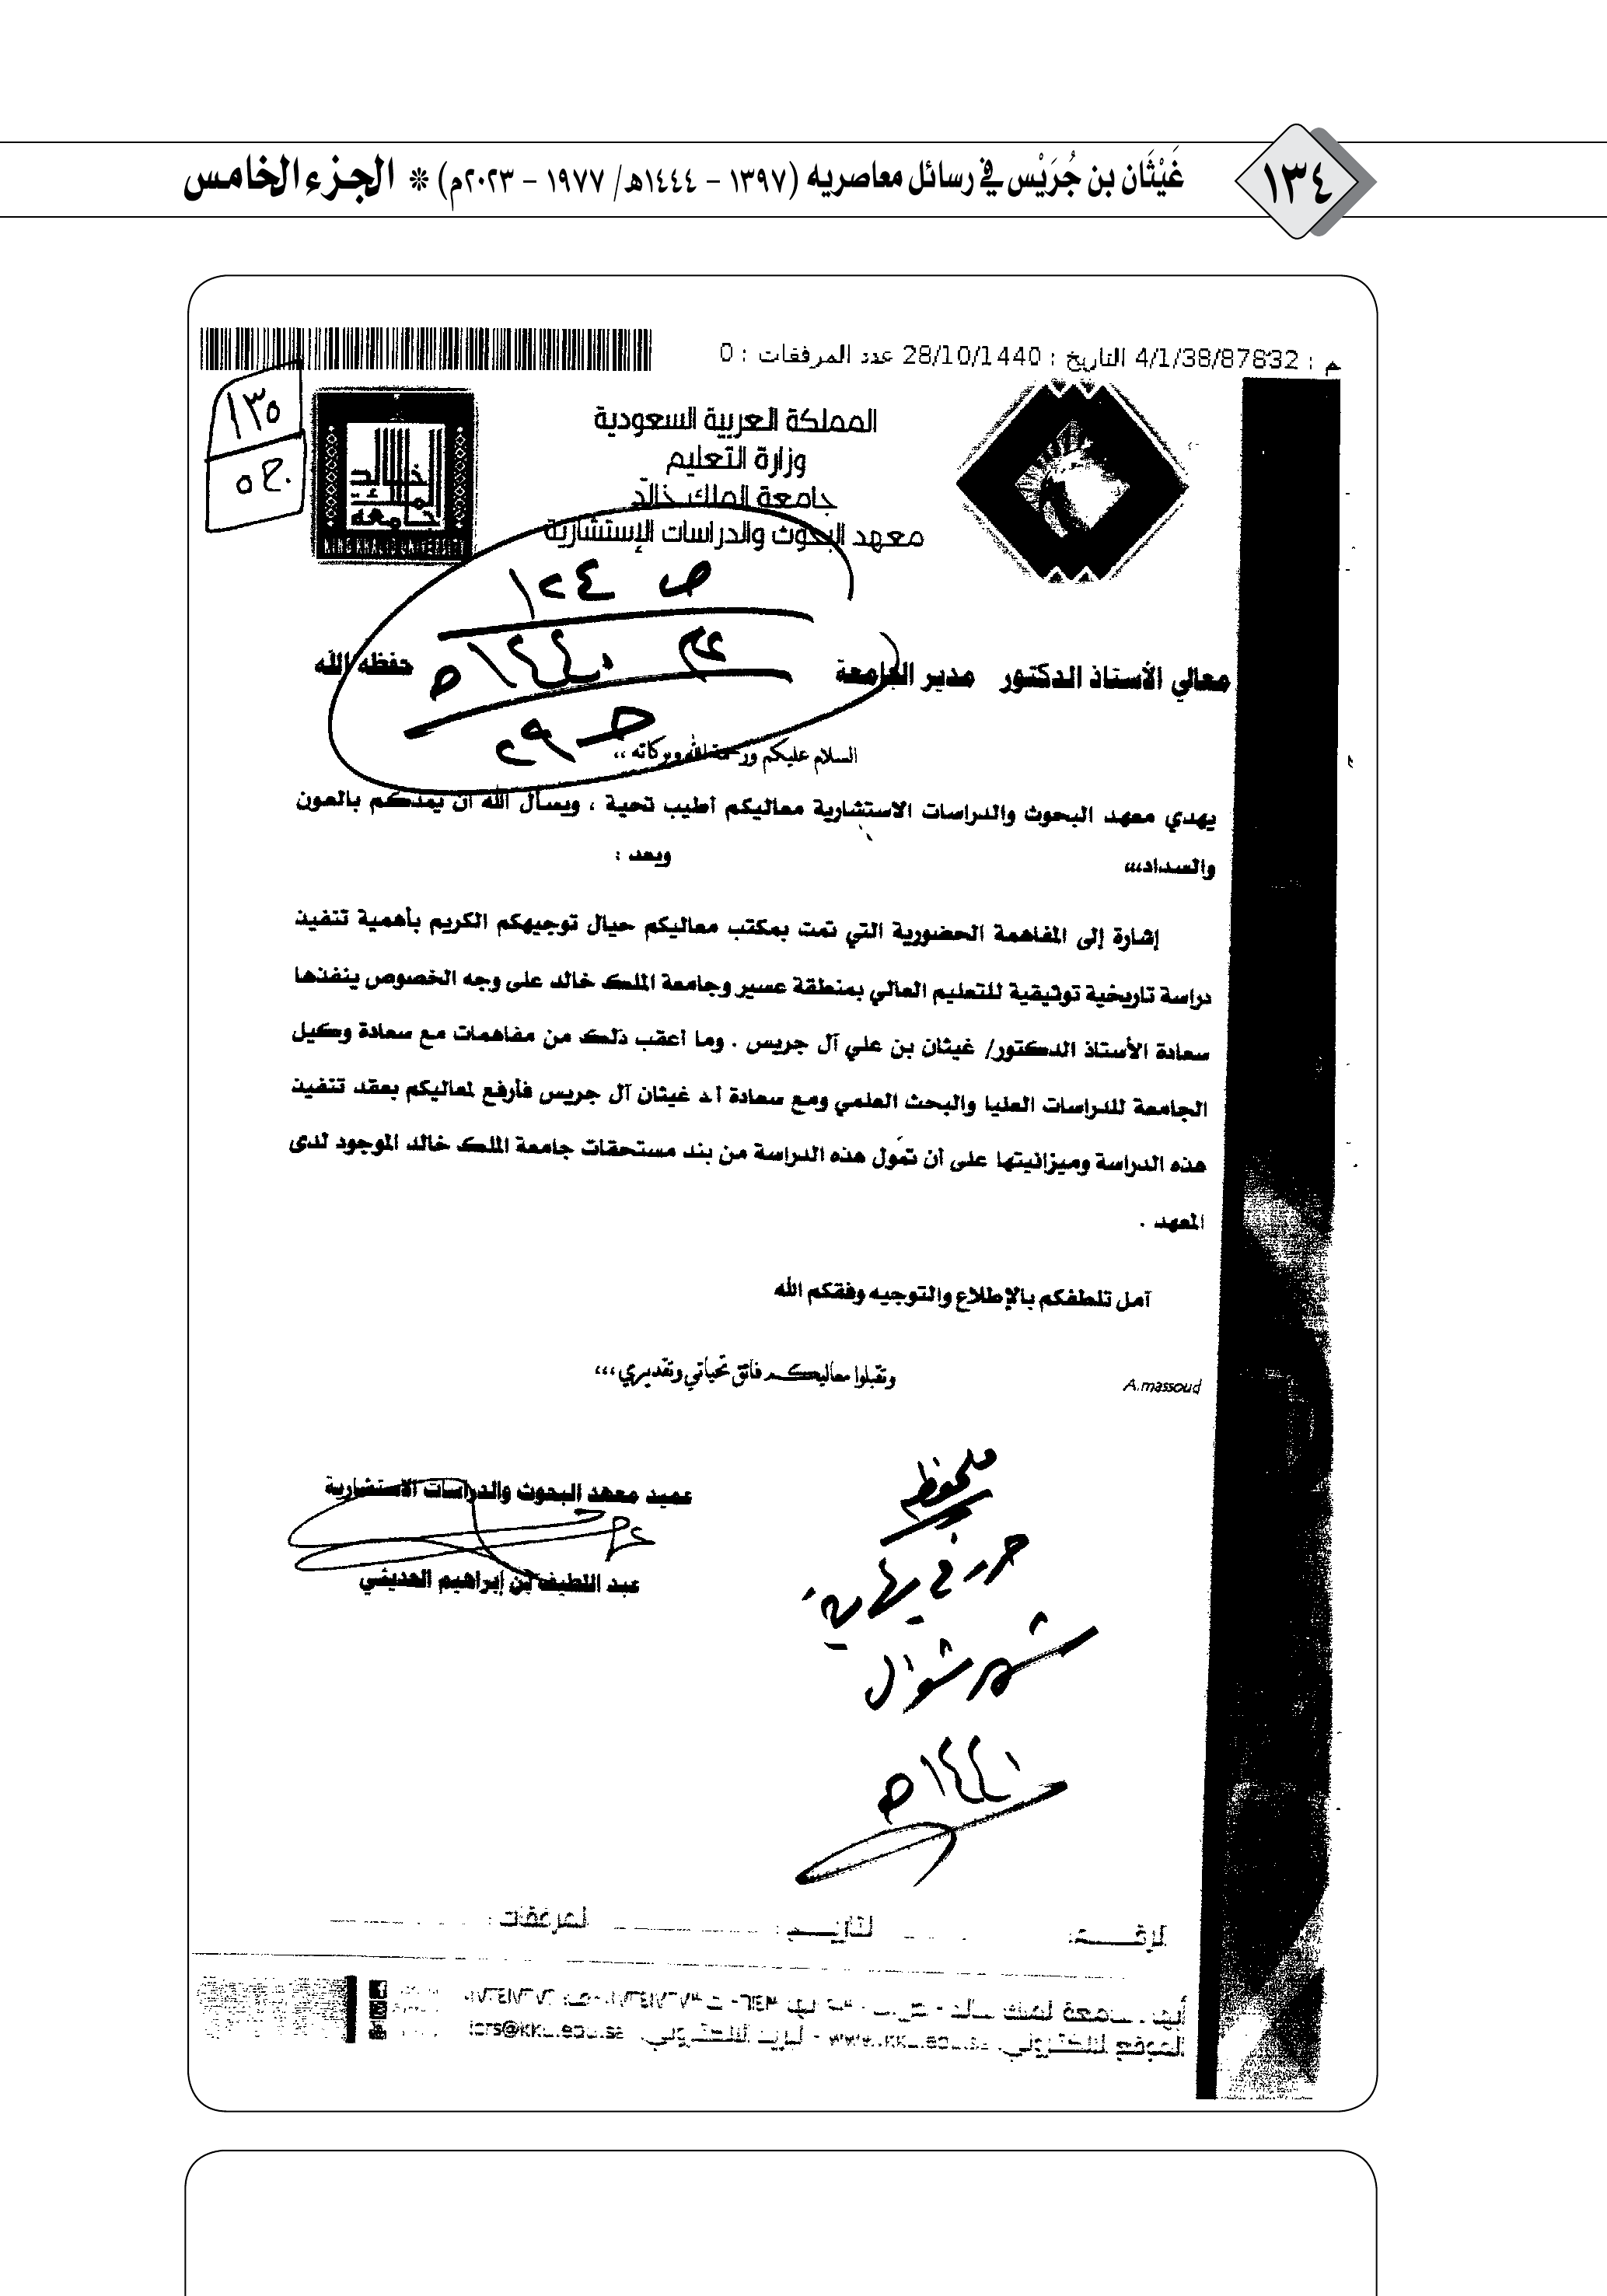 ١٣٤
غَيْثَان بن جُرَيْس في رسائل معاصريه (١٣٩٧ – ١٤٤٤هـ/ ١٩٧٧ – ٢٠٢٣م) * الجزء الخامس
م : 4/1/38/87832 التاريخ : 28/10/1440 عدد المرفقات : 0
١٣٥
ج ٥
المملكة العربية السعودية
وزارة التعليم
جامعة الملك خالد
معهد البحوث والدراسات الإستشارية
جامعة الملك خالد
KING KHALID UNIVERSITY
ص ١٢٤
معالي الأستاذ الدكتور مدير الجامعة حفظه الله
١٤٤٠هـ
ج ٢٩
السلام عليكم ورحمة الله وبركاته ،،
يهدي معهد البحوث والدراسات الاستشارية معاليكم أطيب تحية ، ويسأل الله أن يمدكم بالعون
والسداد،،، وبعد :
إشارة إلى المفاهمة الحضورية التي تمت بمكتب معاليكم حيال توجيهكم الكريم بأهمية تنفيذ
دراسة تاريخية توثيقية للتعليم العالي بمنطقة عسير وجامعة الملك خالد على وجه الخصوص ينفذها
سعادة الأستاذ الدكتور/ غيثان بن علي آل جريس . وما أعقب ذلك من مفاهمات مع سعادة وكيل
الجامعة للدراسات العليا والبحث العلمي ومع سعادة أ.د غيثان آل جريس فأرفع لمعاليكم بعقد تنفيذ
هذه الدراسة وميزانيتها على أن تمُول هذه الدراسة من بند مستحقات جامعة الملك خالد الموجود لدى
المعهد .
آمل تلطفكم بالإطلاع والتوجيه وفقكم الله
وتقبلوا معاليكم فائق تحياتي وتقديري،،،
A.massoud
عميد معهد البحوث والدراسات الاستشارية
عبد اللطيف بن إبراهيم الحديثي
ملحوظة
حرر في نهاية
شهر شوال
١٤٤٠هـ
الرقم: التاريخ : المرفقات :